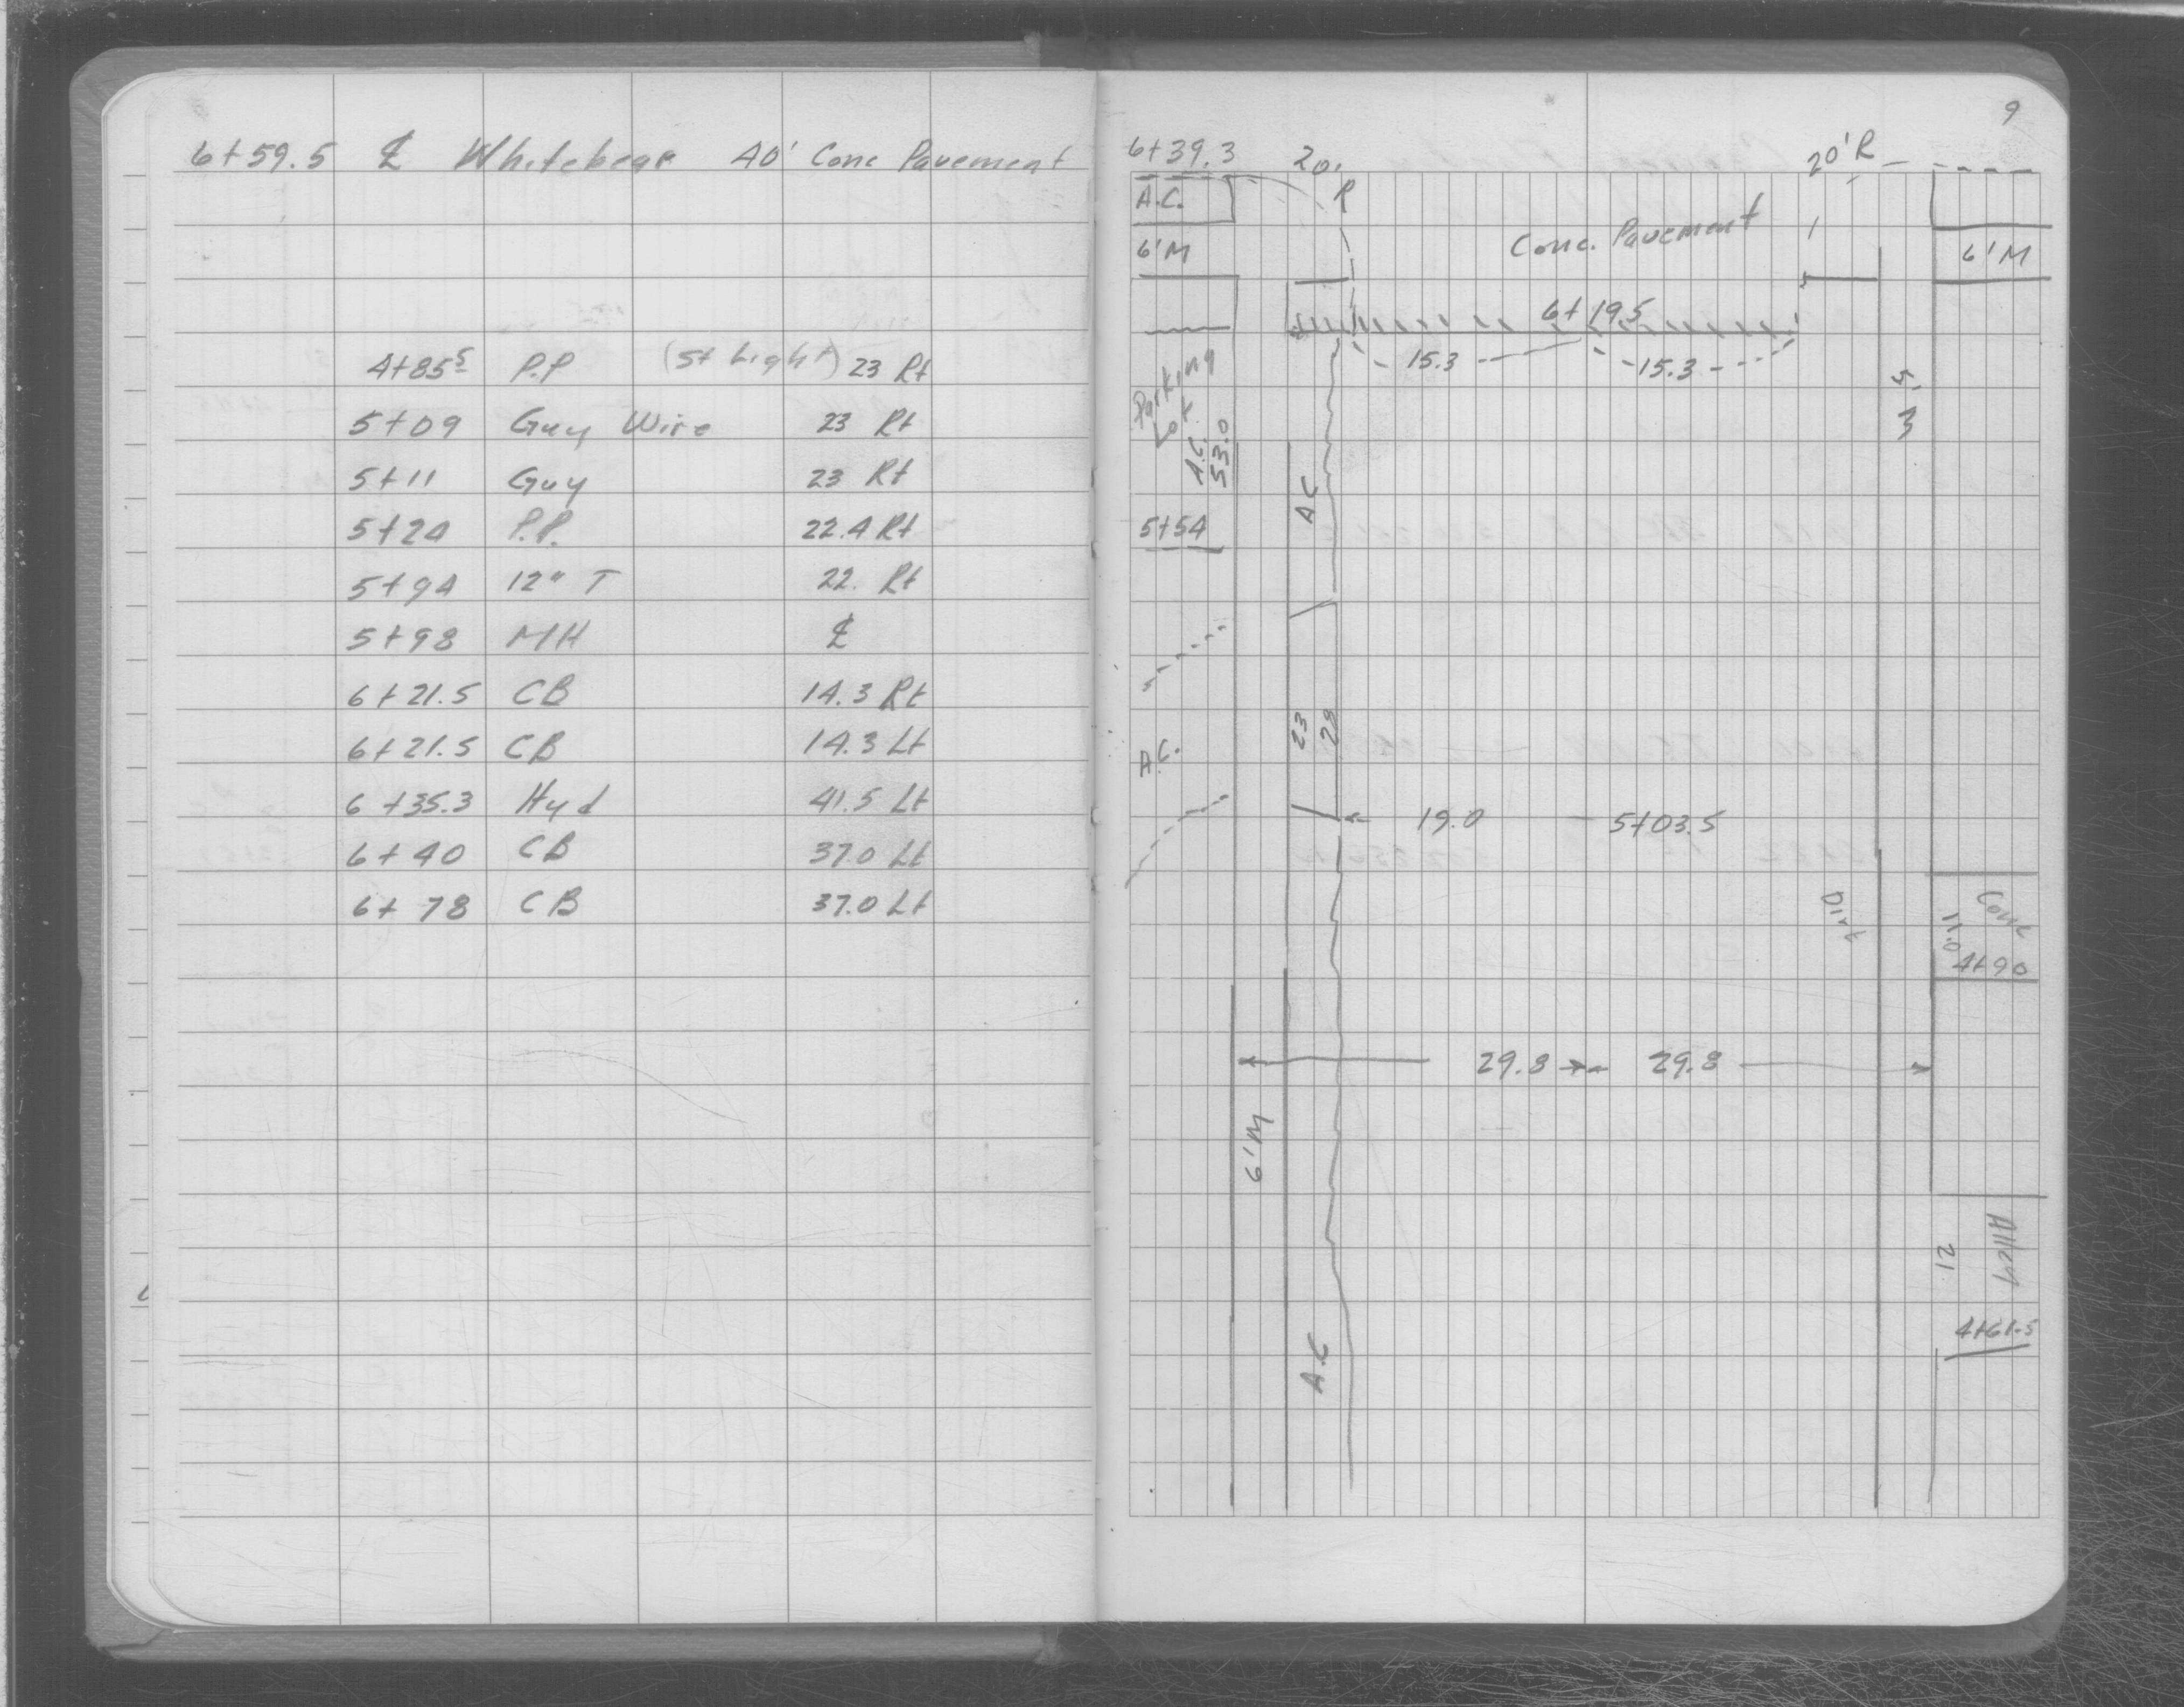 6+59.5 ℄ Whitebear 40' Conc Pavement
4+85⁵ P.P (St Light) 23 Rt
5+09 Guy Wire 23 Rt
5+11 Guy 23 Rt
5+24 P.P. 22.4 Rt
5+94 12" T 22. Rt
5+98 MH ℄
6+21.5 CB 14.3 Rt
6+21.5 CB 14.3 Lt
6+35.3 Hyd 41.5 Lt
6+40 CB 37.0 Lt
6+78 CB 37.0 Lt
9
6+39.3 20' R 20'R
A.C.
Conc. Pavement
6'M 6'M
6+19.5
15.3 15.3
Parking
Lot
A.C.
53.0
A.C
5+54
23
28
A.C.
19.0 5+03.5
Dirt
Conc
11.0
4+90
29.8 29.8
6'M
Alley
12
4+61.5
A.C